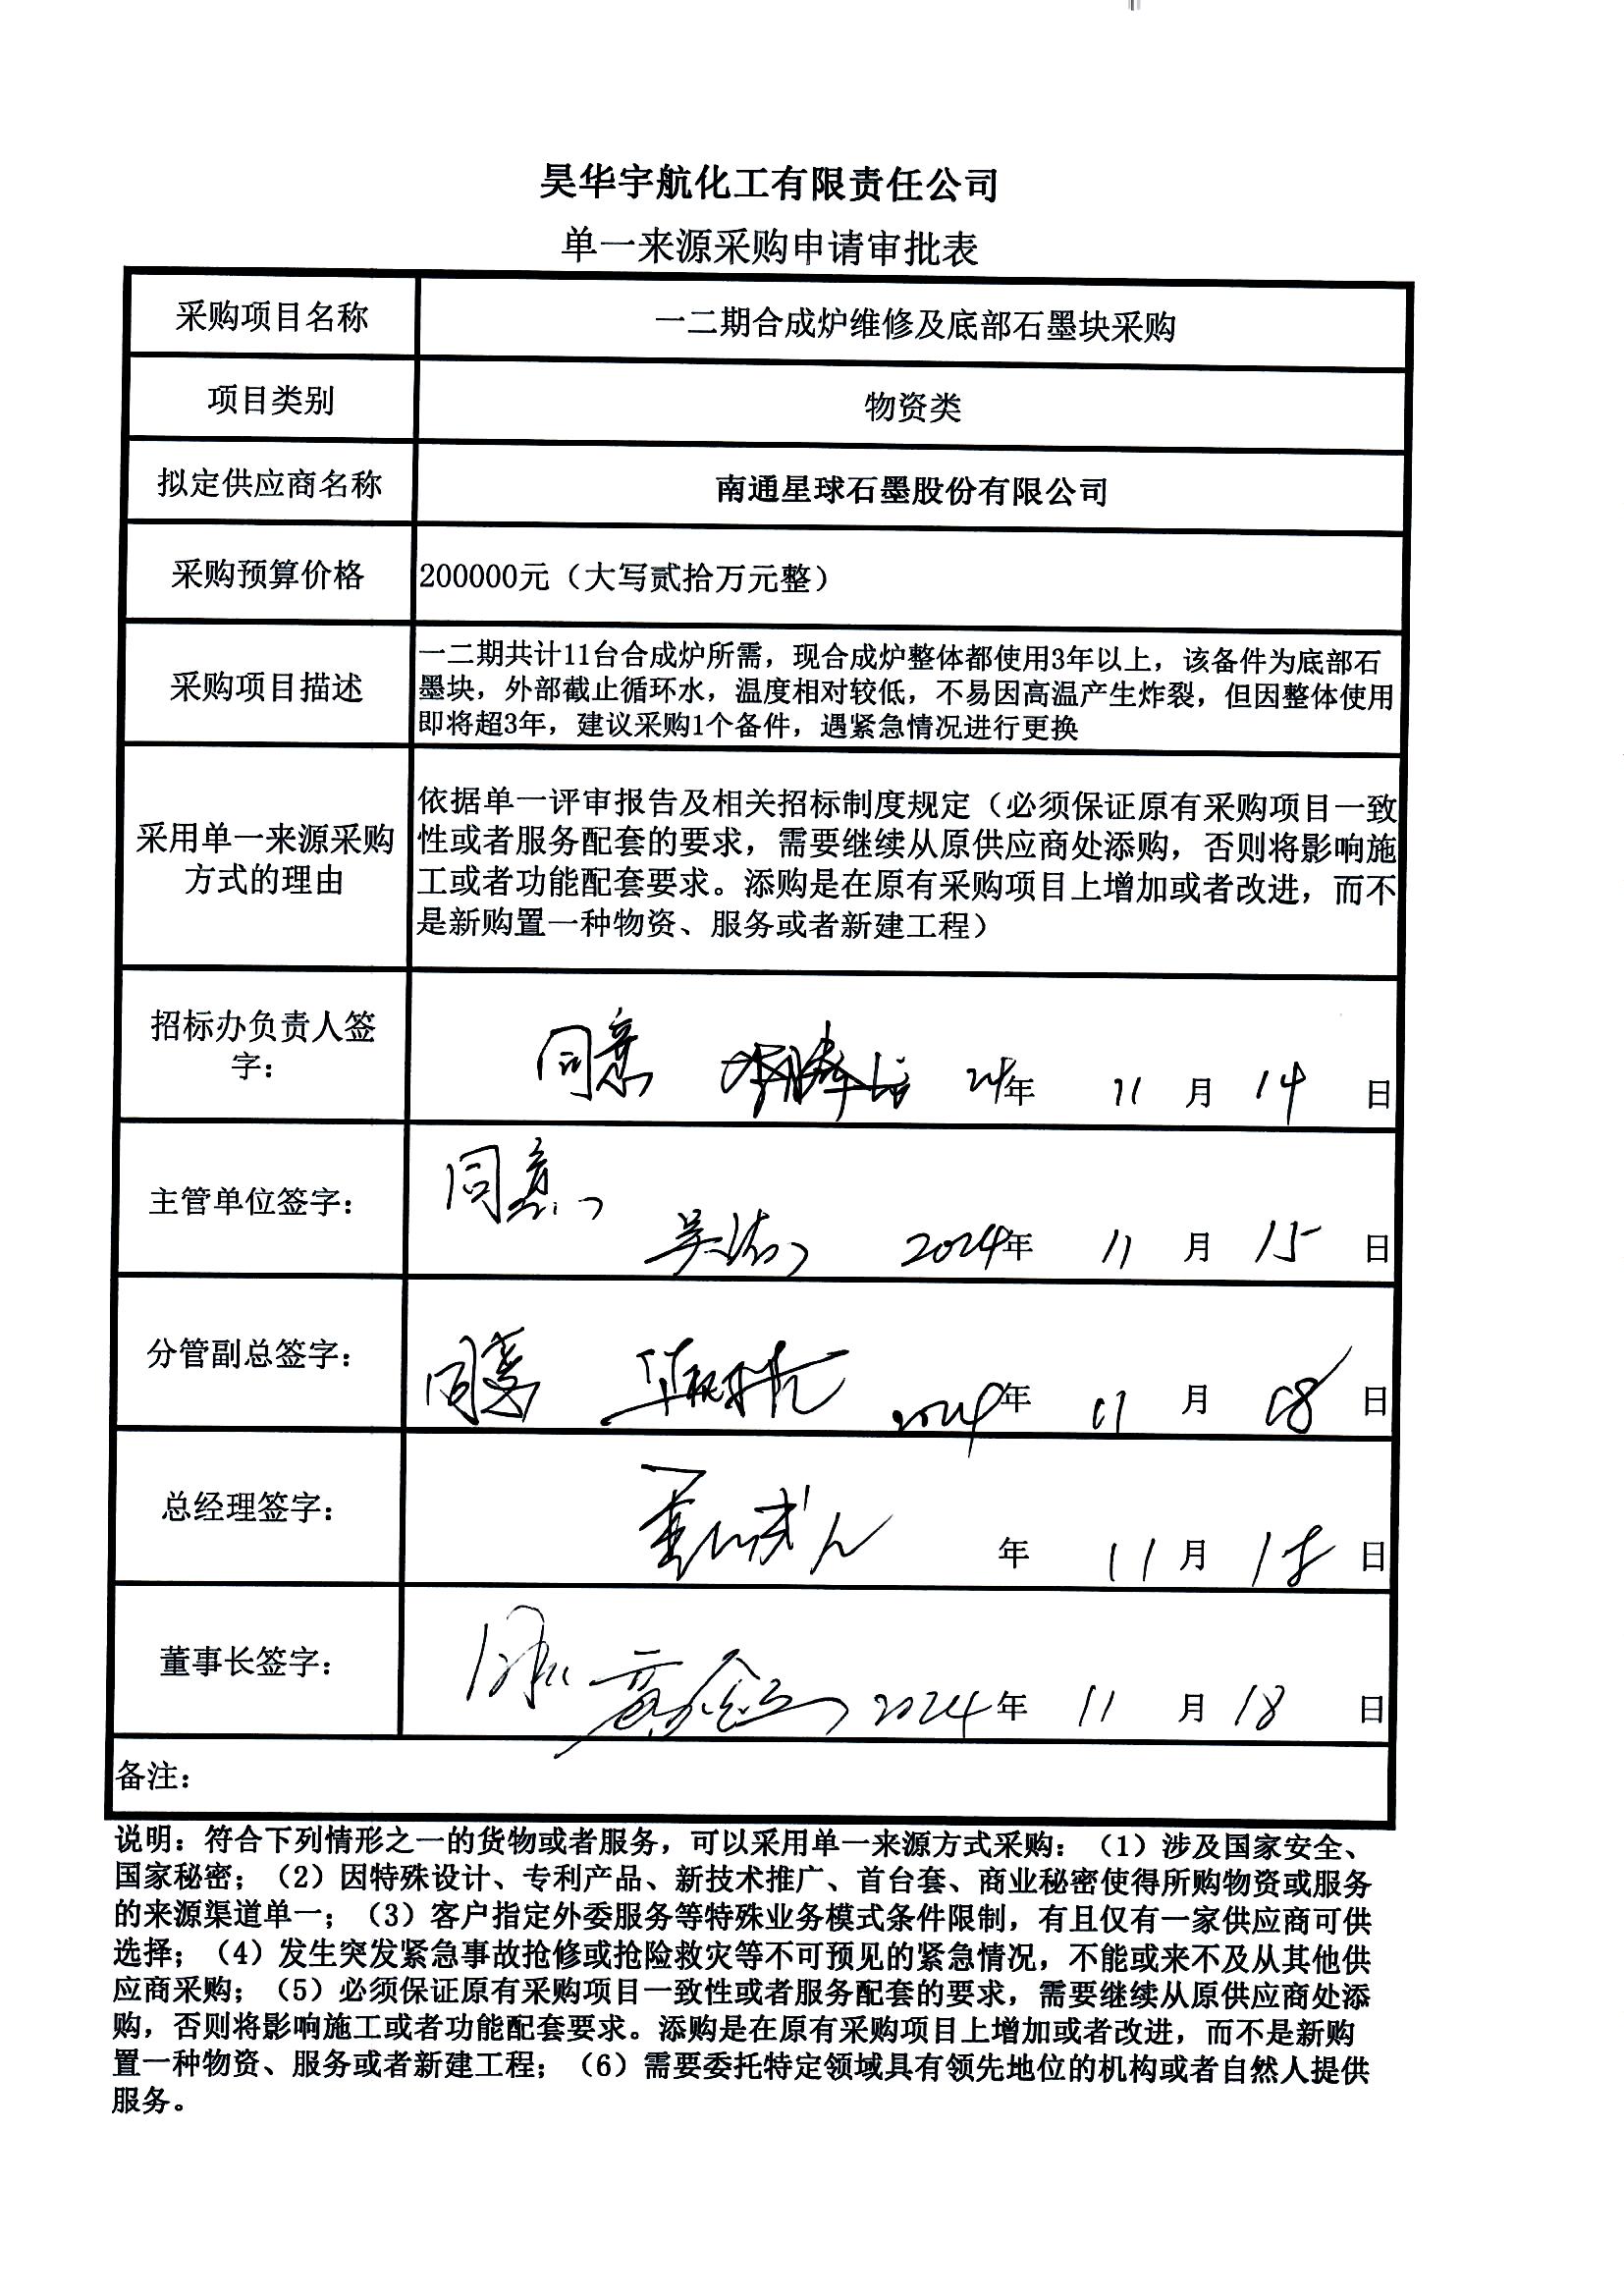 昊华宇航化工有限责任公司
单一来源采购申请审批表
采购项目名称
一二期合成炉维修及底部石墨块采购
项目类别
物资类
拟定供应商名称
南通星球石墨股份有限公司
采购预算价格
200000元（大写贰拾万元整）
采购项目描述
一二期共计11台合成炉所需，现合成炉整体都使用3年以上，该备件为底部石
墨块，外部截止循环水，温度相对较低，不易因高温产生炸裂，但因整体使用
即将超3年，建议采购1个备件，遇紧急情况进行更换
采用单一来源采购
方式的理由
依据单一评审报告及相关招标制度规定（必须保证原有采购项目一致
性或者服务配套的要求，需要继续从原供应商处添购，否则将影响施
工或者功能配套要求。添购是在原有采购项目上增加或者改进，而不
是新购置一种物资、服务或者新建工程）
招标办负责人签
字：
同意 24年 11 月 14 日
主管单位签字：
同意
2024年 11 月 15 日
分管副总签字：
同意 2024年 11 月 18 日
总经理签字：
年 11 月 18 日
董事长签字：
2024年 11 月 18 日
备注：
说明：符合下列情形之一的货物或者服务，可以采用单一来源方式采购：（1）涉及国家安全、
国家秘密；（2）因特殊设计、专利产品、新技术推广、首台套、商业秘密使得所购物资或服务
的来源渠道单一；（3）客户指定外委服务等特殊业务模式条件限制，有且仅有一家供应商可供
选择；（4）发生突发紧急事故抢修或抢险救灾等不可预见的紧急情况，不能或来不及从其他供
应商采购；（5）必须保证原有采购项目一致性或者服务配套的要求，需要继续从原供应商处添
购，否则将影响施工或者功能配套要求。添购是在原有采购项目上增加或者改进，而不是新购
置一种物资、服务或者新建工程；（6）需要委托特定领域具有领先地位的机构或者自然人提供
服务。